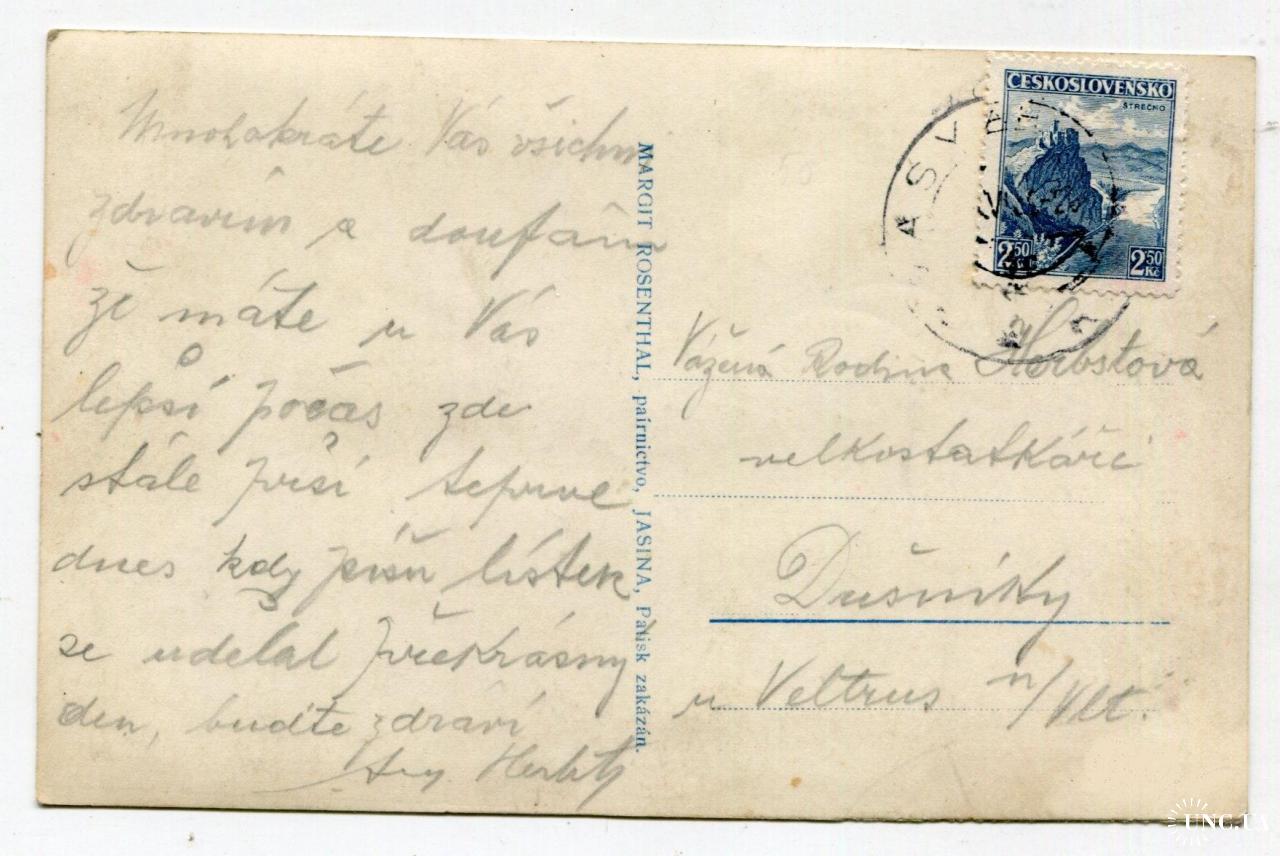 Mnohokráte Vás všichni
zdravím a doufám
že máte u Vás
lepší počas zde
stále prší teprve
dnes kdy píšu lístek
se udělal překrásny
den, buďte zdraví
MARGIT ROSENTHAL, paírnictvo, JASINA, Patisk zakázán.
ČESKOSLOVENSKO
STREČNO
2.50 Kč
2.50 Kč
Vážená Rodina Herbstová
velkostatkáři
Dušníky
u Veltrus n/Vlt.
UNC.UA